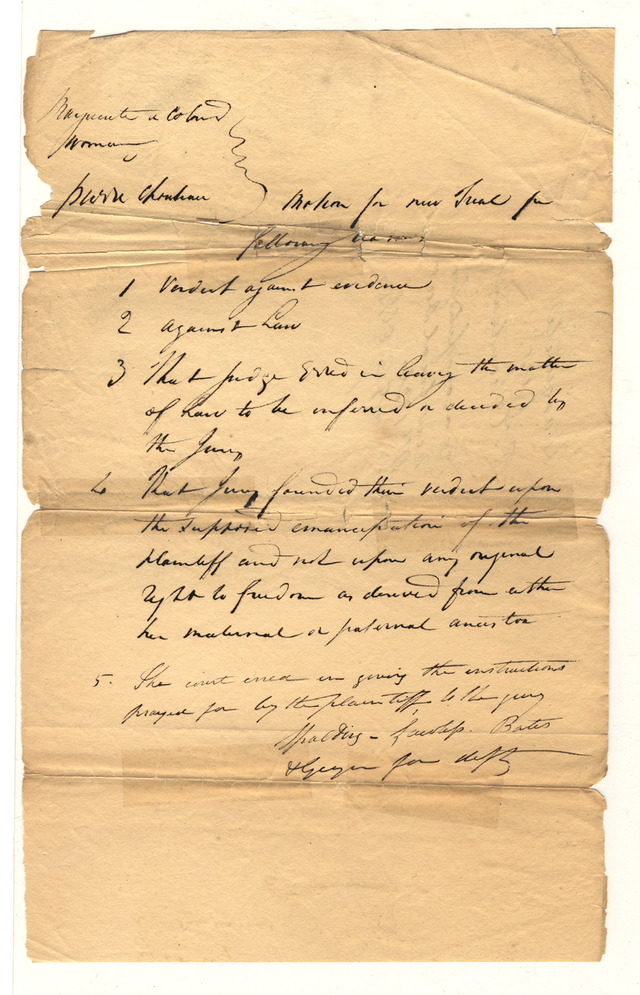 Marguerite a Colored
woman
Pierre Chouteau
Motion for new Trial for
following reasons
1 Verdict against evidence
2 against Law
3 That Judge Erred in leaving the matter
of Law to be inferred or decided by
the Jury
4 That Jury founded their verdict upon
the supposed emancipation of the
plaintiff and not upon any original
right to freedom as derived from either
her maternal or paternal ancestor
5. The court erred in giving the instructions
prayed for by the plaintiff to the jury
Spalding - Lawless Bates
& Geyer for deft